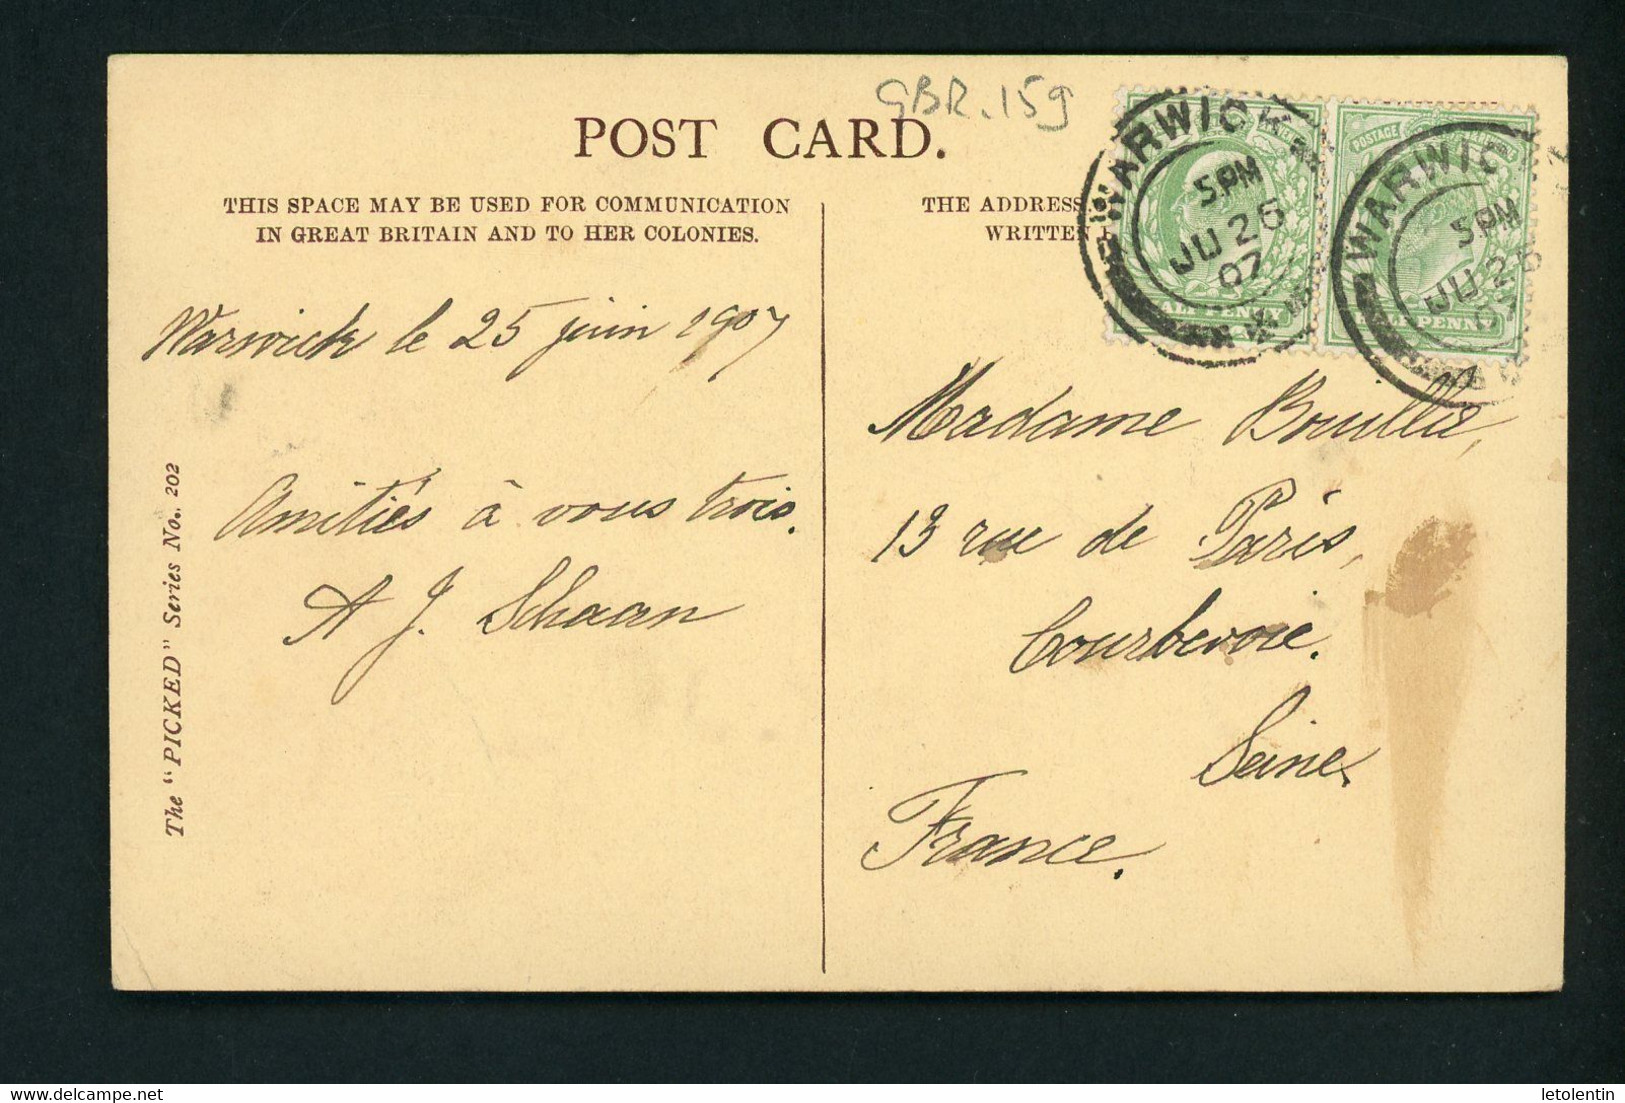 GBR.159
POST CARD.
THIS SPACE MAY BE USED FOR COMMUNICATION
IN GREAT BRITAIN AND TO HER COLONIES.
THE ADDRESS
WRITTEN
WARWICK
5 PM
JU 26
07
HALFPENNY
POSTAGE
WARWIC
5 PM
JU 26
07
Warwick le 25 juin 1907
Amitiés à vous trois.
A J. Schaan
Madame Bouillé,
13 rue de Paris,
Courbevoie.
Seine.
France.
The "PICKED" Series No. 202
letolentin